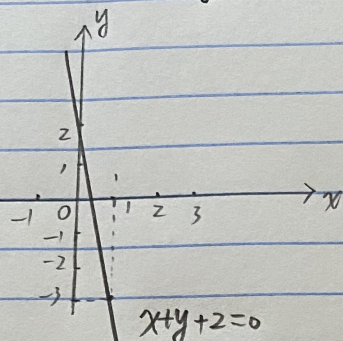 y
2
1
-1 0 1 2 3 x
-1
-2
-3
x+y+2=0